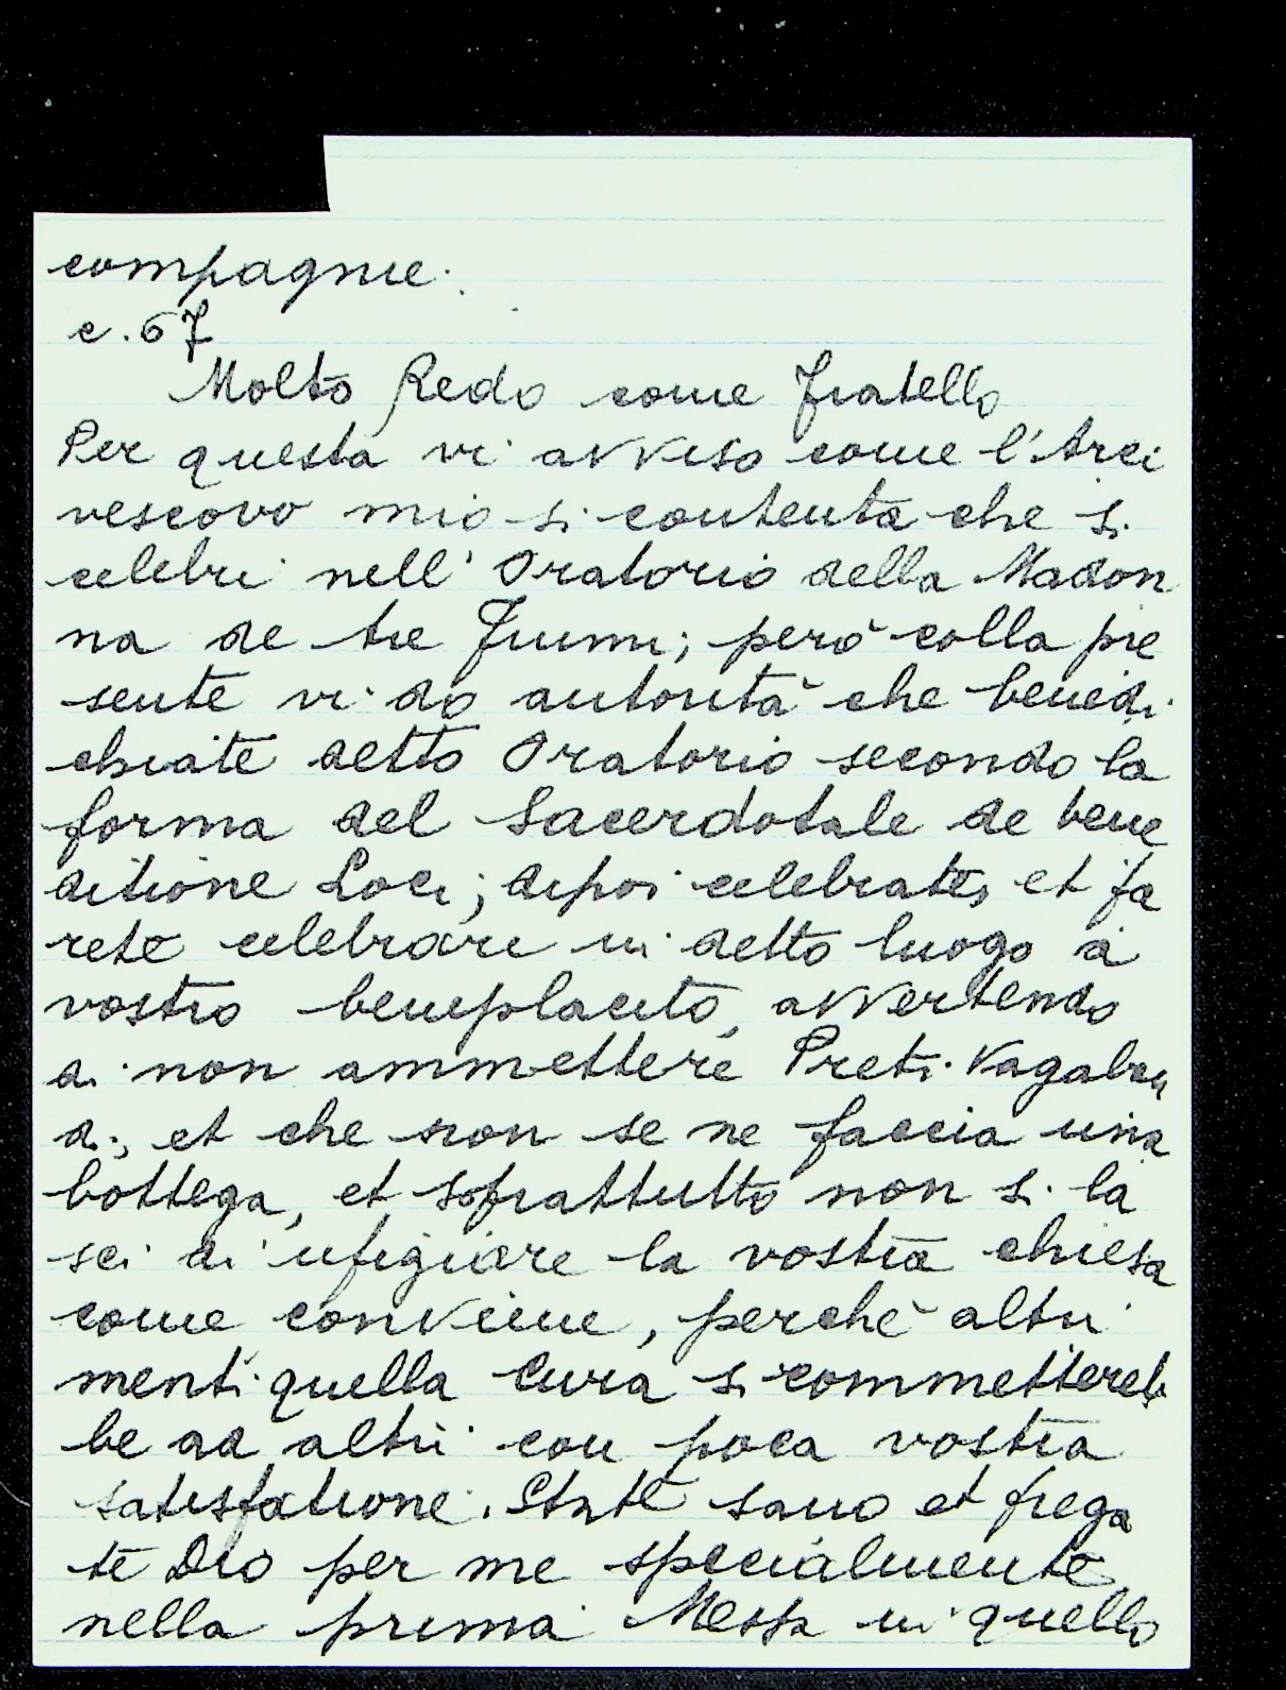 compagnie.
c. 67
Molto Redo come fratello
Per questa vi avviso come l'Arci
vescovo mio si contenta che si
celebri nell' Oratorio della Madon
na de tre Fiumi; però colla pre
sente vi do autorità che benedi
chiate detto Oratorio secondo la
forma del Sacerdotale de bene
ditione Loci; dipoi celebrate, et fa
rete celebrare in detto luogo a
vostro beneplacito, avvertendo
di non ammettere Preti Vagabon
di, et che non se ne faccia una
bottega, et soprattutto non si la
sci di ufigiare la vostra chiesa
come conviene, perchè altri
menti quella Cura si commettereb
be ad altri con poca vostra
satisfatione. State sano et prega
te Dio per me specialmente
nella prima Messa in quello